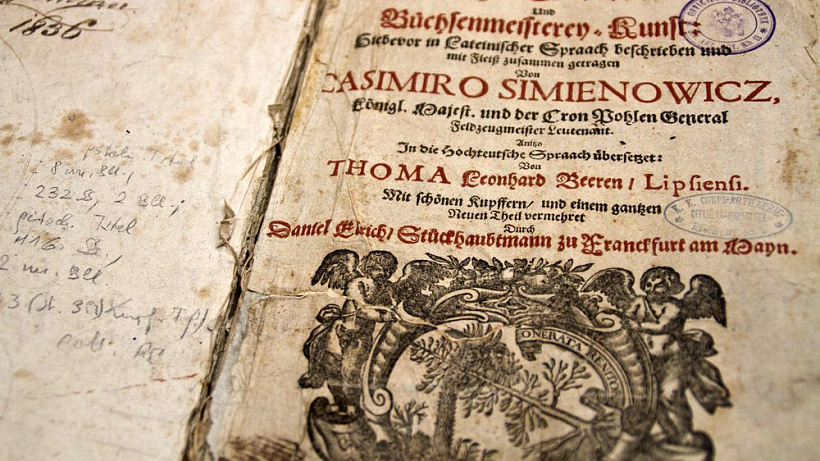 1836
8 un. Bll.,
232 S., 2 Bll.,
Titel
416 S.
2 un. Bll.
Und
Büchsenmeisterey-Kunst:
Hiebevor in Lateinischer Spraach beschrieben und
mit Fleiß zusammen getragen
Von
CASIMIRO SIMIENOWICZ,
Königl. Majest. und der Cron Pohlen General
Feldzeugmeister Leutenant.
Anitzo
In die Hochteutsche Spraach übersetzet:
Von
THOMA Leonhard Beeren / Lipsiensi.
Mit schönen Kupffern / und einem gantzen
Neuen Theil vermehret
Durch
Daniel Elrich / Stückhaubtmann zu Franckfurt am Mayn.
K. K. CORPS-ARTILLERIE-
ONERATA RENITOR